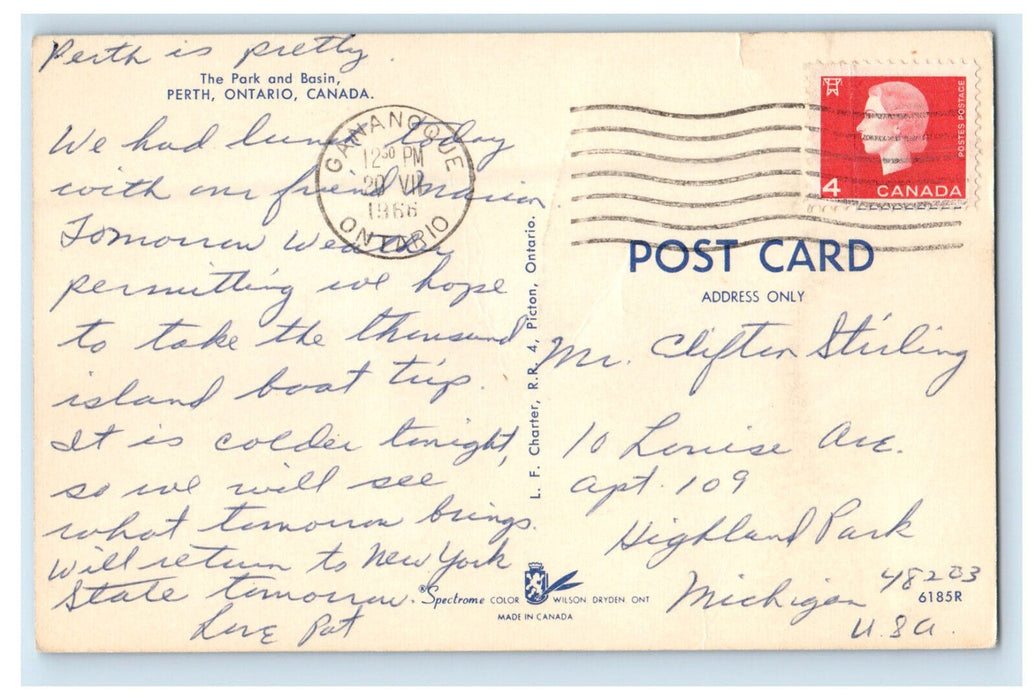 Perth is pretty.
The Park and Basin,
PERTH, ONTARIO, CANADA.
We had lunch today
with our friend Marion
Tomorrow Weather
permitting we hope
to take the thousand
island boat trip.
It is colder tonight,
so we will see
what tomorrow brings.
Will return to New York
State tomorrow.
Love Pat
GANANOQUE
12 30 PM
20 VII
1966
ONTARIO
L. F. Charter, R.R. 4, Picton, Ontario.
POSTES POSTAGE
4
CANADA
POST CARD
ADDRESS ONLY
Mr. Clifton Stirling
10 Louise Ave.
Apt. 109
Highland Park
Michigan 48203
U.S.A.
6185R
®Spectrome COLOR WILSON DRYDEN ONT
MADE IN CANADA